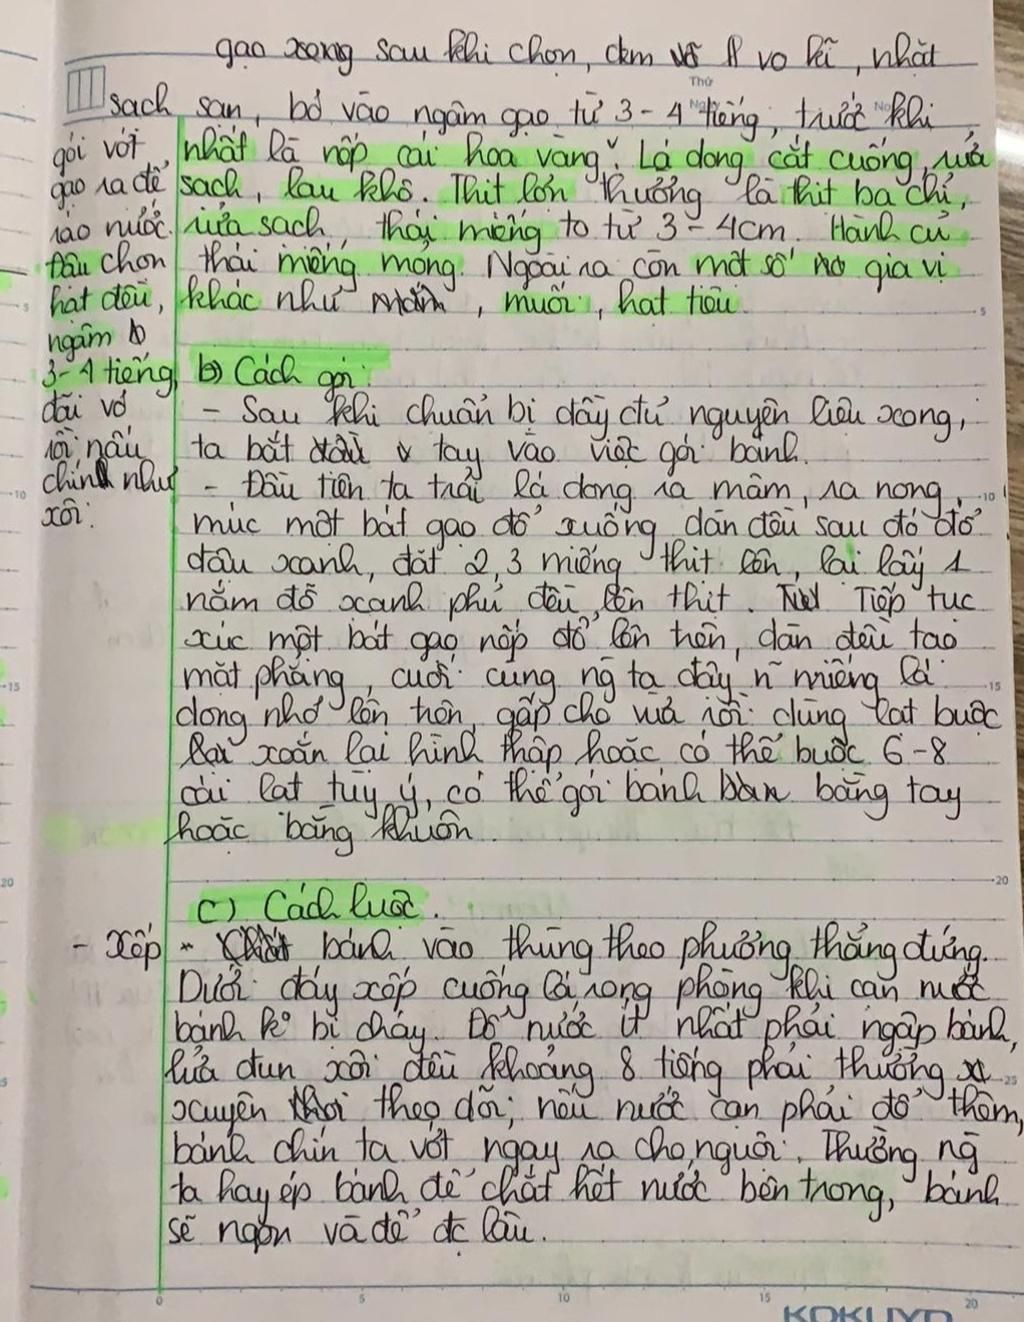 gạo xong sau khi chọn, đem vo kĩ, nhặt
Thứ
sạch sạn, bỏ vào ngâm gạo từ 3-4 tiếng, trước khi
gói vớt
gạo ra để
ráo nước.
Đậu chọn
hạt đều,
ngâm
3-4 tiếng
đãi vỏ
rồi nấu
chính như
xôi.
nhất là nếp cái hoa vàng". Lá dong cắt cuống, rửa
sạch, lau khô. Thịt lợn thường là thịt ba chỉ,
rửa sạch, thái miếng to từ 3-4cm. Hành củ
thái miếng mỏng. Ngoài ra còn một số gia vị
khác như, muối, hạt tiêu.
b) Cách gói:
- Sau khi chuẩn bị đầy đủ nguyên liệu xong,
ta bắt đầu tay vào việc gói bánh.
- Đầu tiên ta trải lá dong ra mâm, ra nong,
múc một bát gạo đổ xuống dàn đều sau đó đổ
đậu xanh, đặt 2,3 miếng thịt lên, lại lấy 1
nắm đỗ xanh phủ đều lên thịt. Tiếp tục
xúc một bát gạo nếp đổ lên trên, dàn đều tạo
mặt phẳng, cuối cùng ng ta đậy n~ miếng lá
dong nhỏ lên trên, gấp cho vừa rồi dùng lạt buộc
lại xoắn lại hình thập hoặc có thể buộc 6-8
cái lạt tùy ý, có thể gói bánh bằng tay
hoặc bằng khuôn.
c) Cách luộc.
- Xếp bánh vào thùng theo phương thẳng đứng.
Dưới đáy xếp cuống lá rong phòng khi cạn nước
bánh k° bị cháy. Đổ nước ít nhất phải ngập bánh,
lửa đun sôi đều khoảng 8 tiếng phải thường
xuyên theo dõi, nếu nước cạn phải đổ thêm,
bánh chín ta vớt ngay ra cho nguội. Thường ng
ta hay ép bánh để chắt hết nước bên trong, bánh
sẽ ngon và để đc lâu.
0 5 10 15 20
KOKUYO